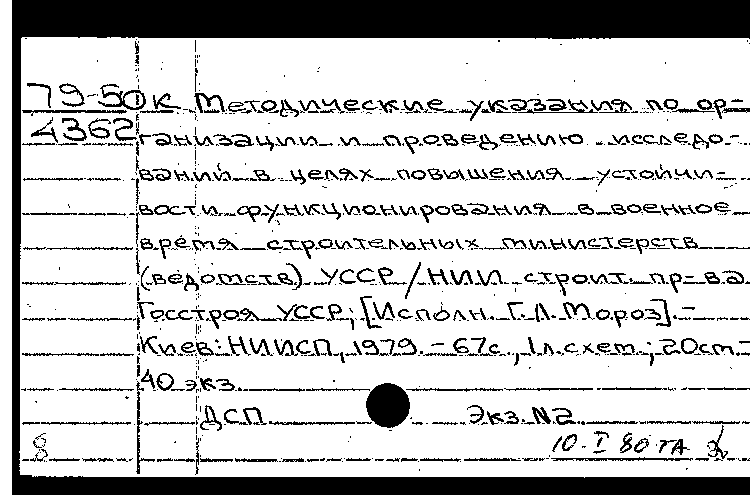 79-50к Методические указания по ор-
4362 ганизации и проведению исследо-
ваний в целях повышения устойчи-
вости функционирования в военное
время строительных министерств
(ведомств) УССР / НИИ строит. пр-ва
Госстроя УССР; [Исполн. Г.Л. Мороз]. -
Киев: НИИСП, 1979. - 67с., 1л.схем.; 20см.-
40 экз.
ДСП Экз. №2
8 10.I 80 ТА